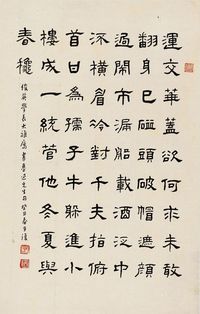 運交華蓋欲何求未敢
翻身已碰頭破帽遮顏
過鬧市漏船載酒泛中
流橫眉冷對千夫指俯
首甘為孺子牛躲進小
樓成一統管他冬夏與
春龝
學長大雅屬書魯迅先生詩